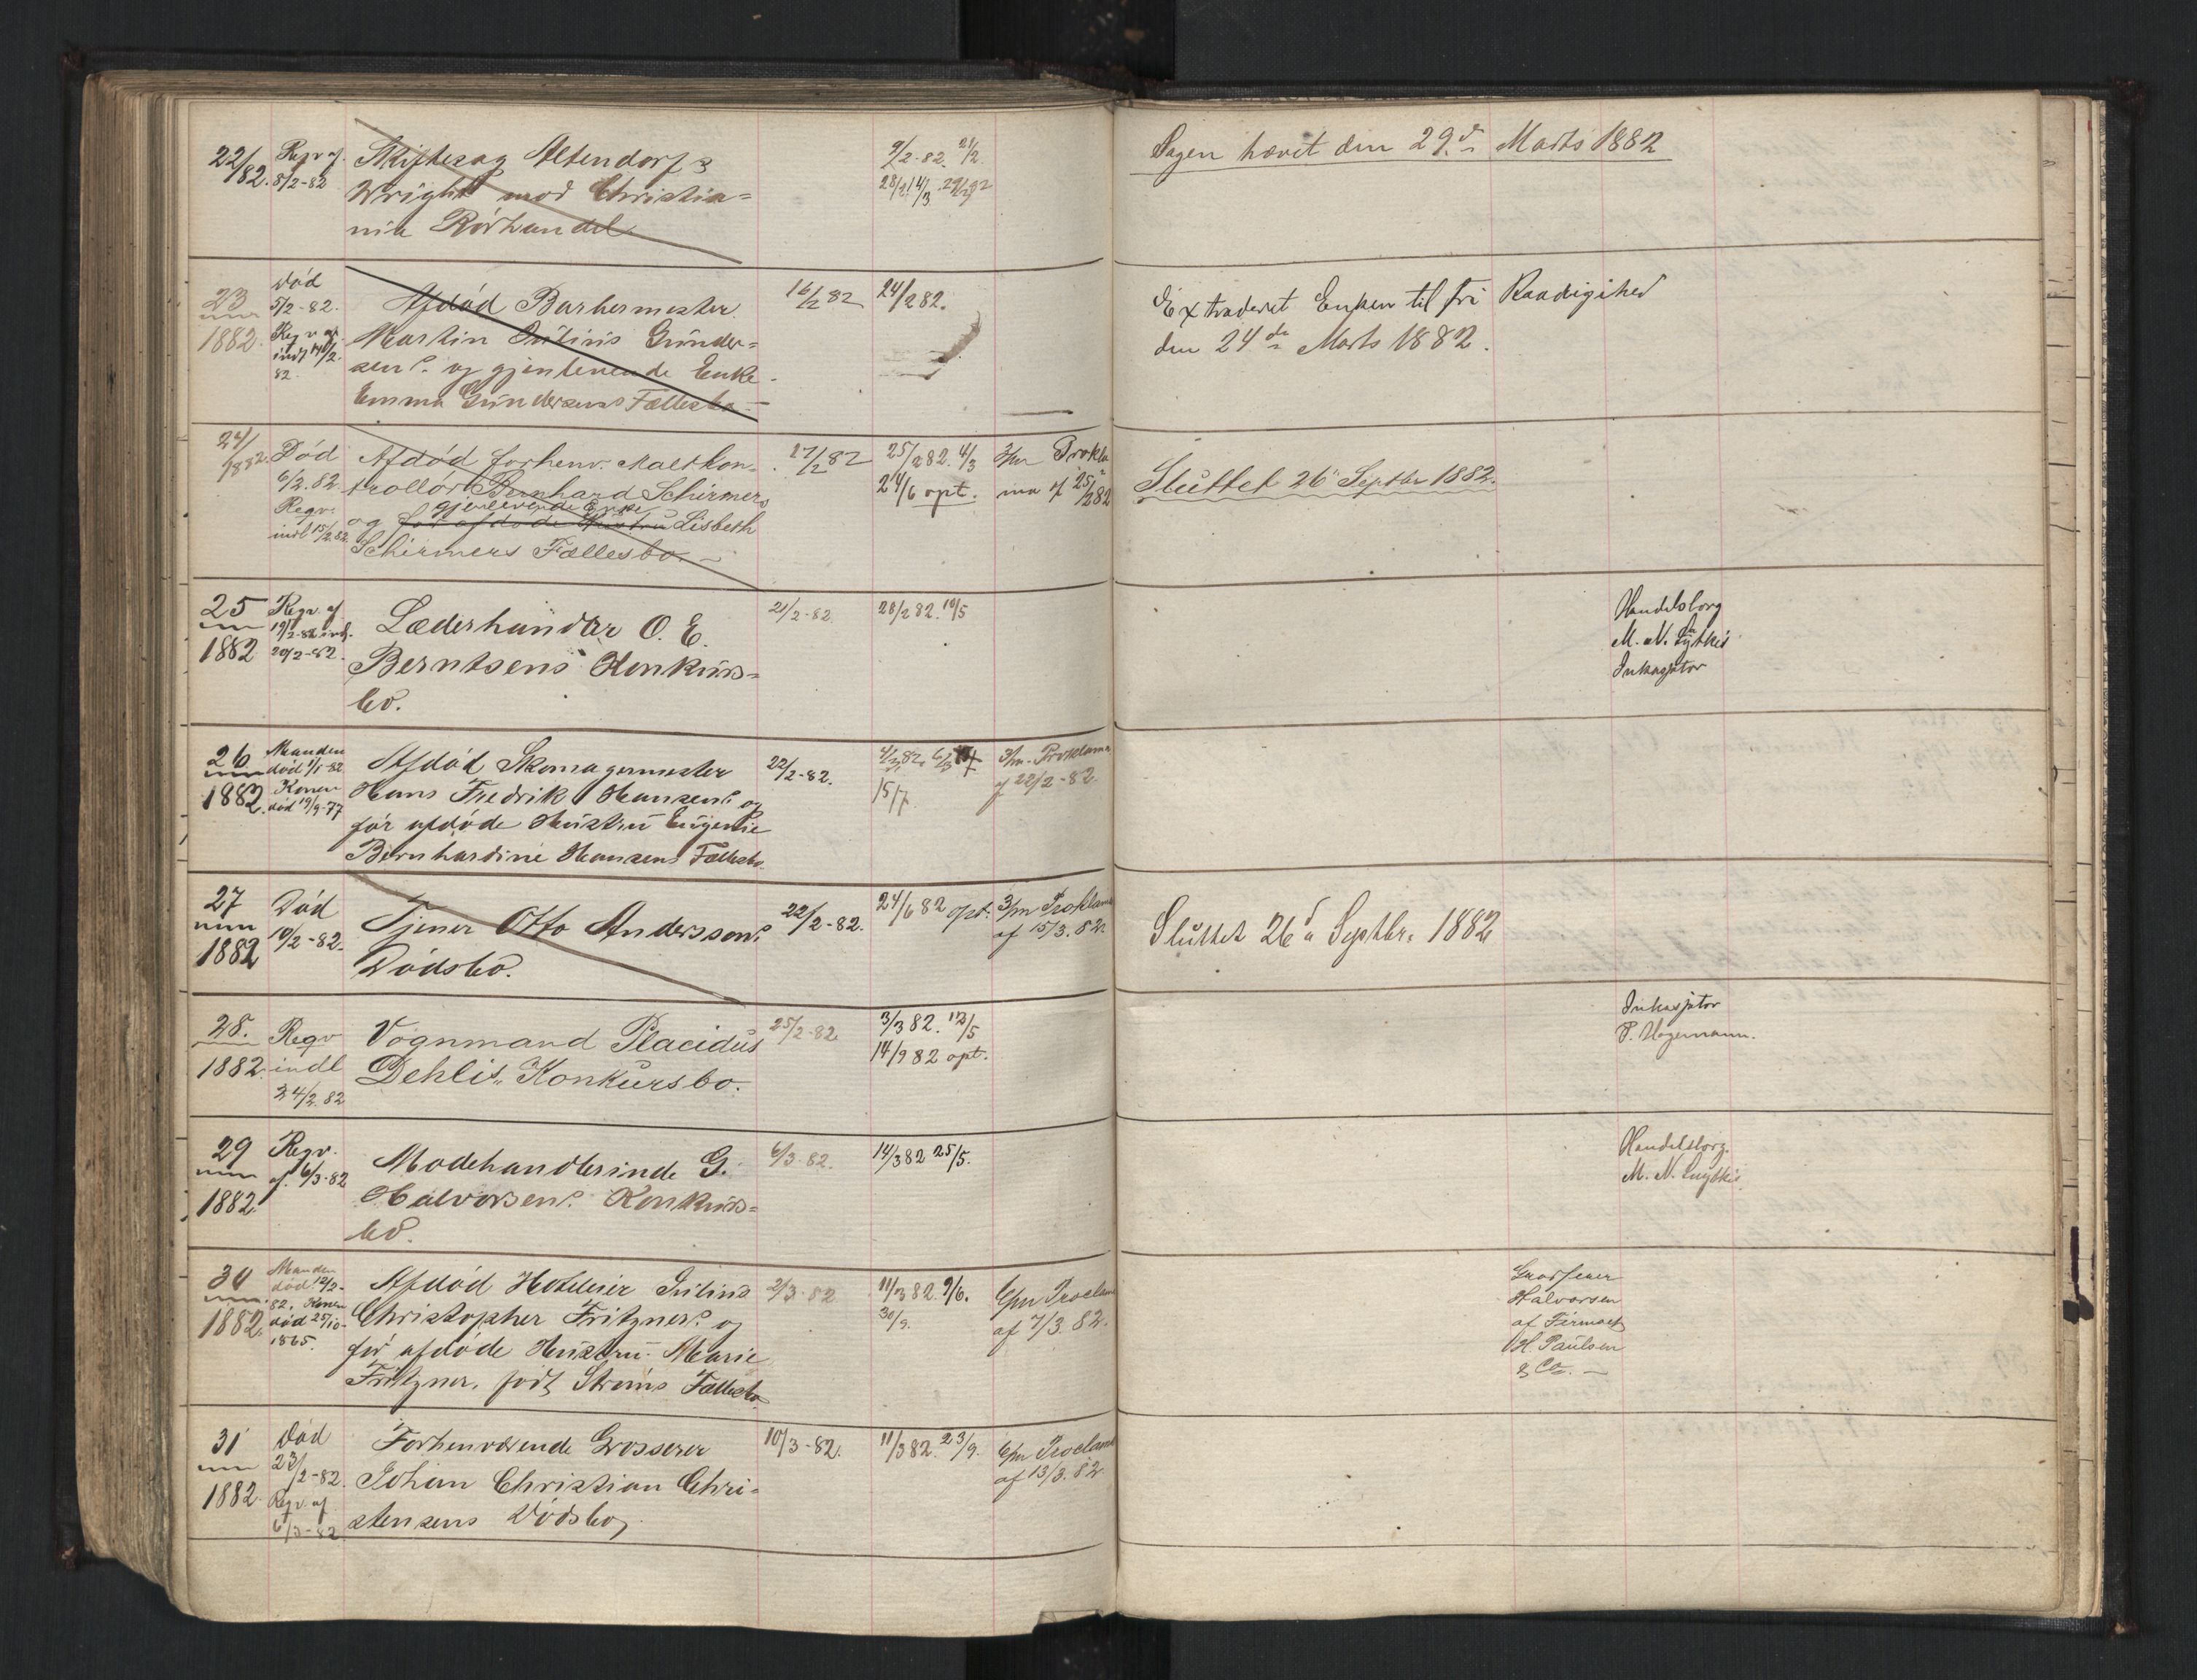 22/82. Reqv af 8/2-82
Skiftesag Altendorf &
Wright mod Christia=
nia Rörhandel
9/2-82. 21/2.
28/2 14/3. 29/3 82
Sagen hævet den 29de Marts 1882
23 1882.
Död
5/2-82.
Reqv af
indl 14/2.
82.
Afdöd Barbermester
Martin Julius Gunder=
sens og gjenlevende Enke
Emma Gundersens Fællesbo
16/2 82
24/2 82.
Extraderet Enken til fri Raadighed
den 24de Marts 1882.
24/1882.
Död
6/2.82.
Reqv:
indl 15/2.82.
Afdöd forhenv. Maltkon=
trollör Bernhard Schirmers
gjenlevende Enke
og før afdøde Hustru Lisbeth
Schirmers Fællesbo.
27/2 82
25/2 82. 4/3
24/6 opt.
3/m Prokla=
ma af 25/2 82
Sluttet 26 Septbr 1882.
25 1882
Reqv. af
19/2-82 indl.
20/2-82.
Læderhandler O. E.
Berntsens Konkurs=
bo.
21/2-82.
28/2 82. 10/5
Handelsborg
M. N.
Inkassator
26 1882.
Manden
död 1/1-82
Konen
död 19/9-77
Afdöd Skomagermester
Hans Fredrik Hansens og
før afdöde Hustru Eugenie
Bernhardine Hansens Fællesbo.
22/2-82.
4/3 82. 6/5
15/7.
3/m. Proklama
af 22/2-82.
27 1882
Död
10/2-82.
Tjener Otto Anderssons
Dödsbo.
22/2-82.
24/6 82 opt.
3/m Proklama
af 15/3.82.
Sluttet 26d Septbr. 1882
28. 1882.
Reqv
indl
24/2.82
Vognmand Placidus
Dehlis Konkursbo.
25/2-82
3/3 82. 12/5
14/9 82 opt.
Inkassator
P. Hagemann.
29 1882.
Reqv.
af 6/3-82
Modehandlerinde G.
Halvorsens Konkurs=
bo.
6/3-82.
14/3 82 25/5.
Handelsborg.
M. N.
30 1882.
Manden
död 12/2-
82. Konen
död 25/10-
1865.
Afdöd Hotelleier Julius
Christopher Fritzners og
før afdöde Hustru Marie
Fritzner, født Ströms Fællesbo
2/3-82
11/3 82. 9/6.
30/9.
6/m Proclama
af 7/3.82.
Grosserer
Halvorsen
af Firmaet
H. Paulsen
& Co.
31 1882.
Död
23/2-82.
Reqv. af
6/3-82
Forhenværende Grosserer
Johan Christian Chri=
stensens Dödsbo,
10/3-82.
11/3 82. 23/9.
6/m Proclama
af 13/3.82.